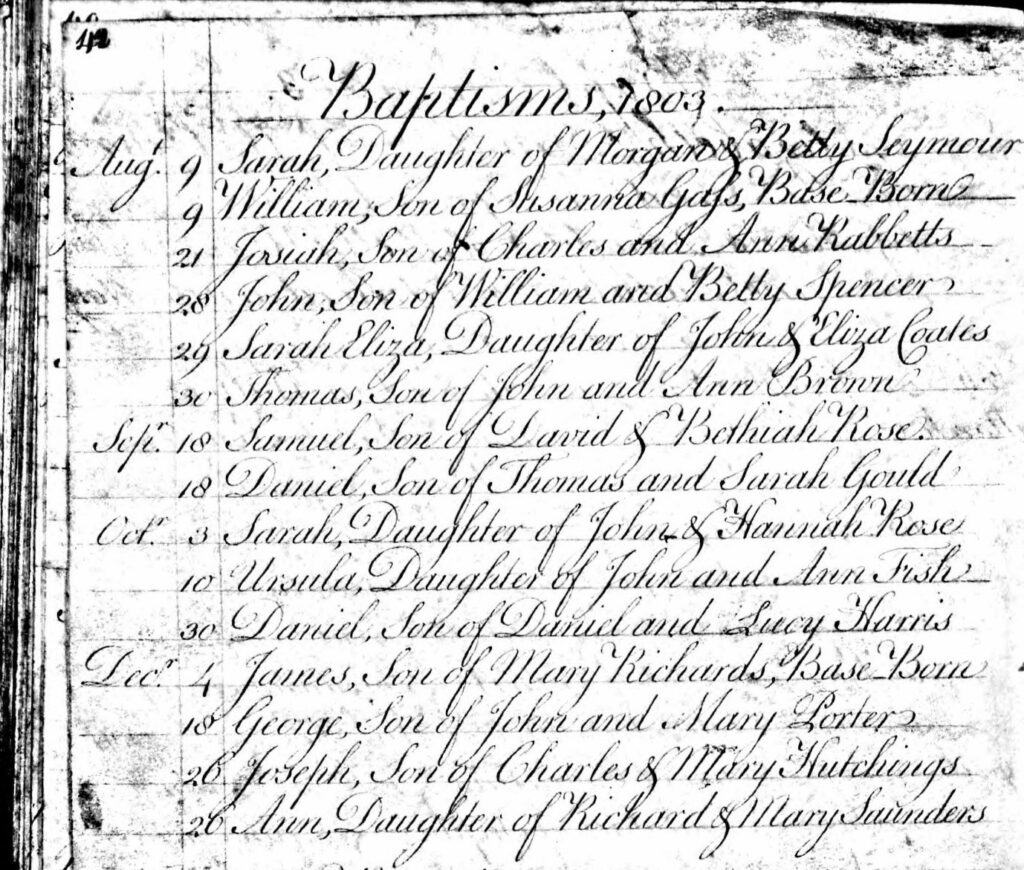 42
Baptisms, 1803.
Augt. 9 Sarah, Daughter of Morgan & Betty Seymour
9 William, Son of Susanna Gaſs, Base Born
21 Josiah, Son of Charles and Ann Rabbetts
28 John, Son of William and Betty Spencer
29 Sarah Eliza, Daughter of John & Eliza Coates
30 Thomas, Son of John and Ann Brown
Sepr. 18 Samuel, Son of David & Bethiah Rose.
18 Daniel, Son of Thomas and Sarah Gould
Octr. 3 Sarah, Daughter of John & Hannah Rose
10 Ursula, Daughter of John and Ann Fish
30 Daniel, Son of Daniel and Lucy Harris
Decr. 4 James, Son of Mary Richards, Base-Born
18 George, Son of John and Mary Porter
26 Joseph, Son of Charles & Mary Hutchings
26 Ann, Daughter of Richard & Mary Saunders